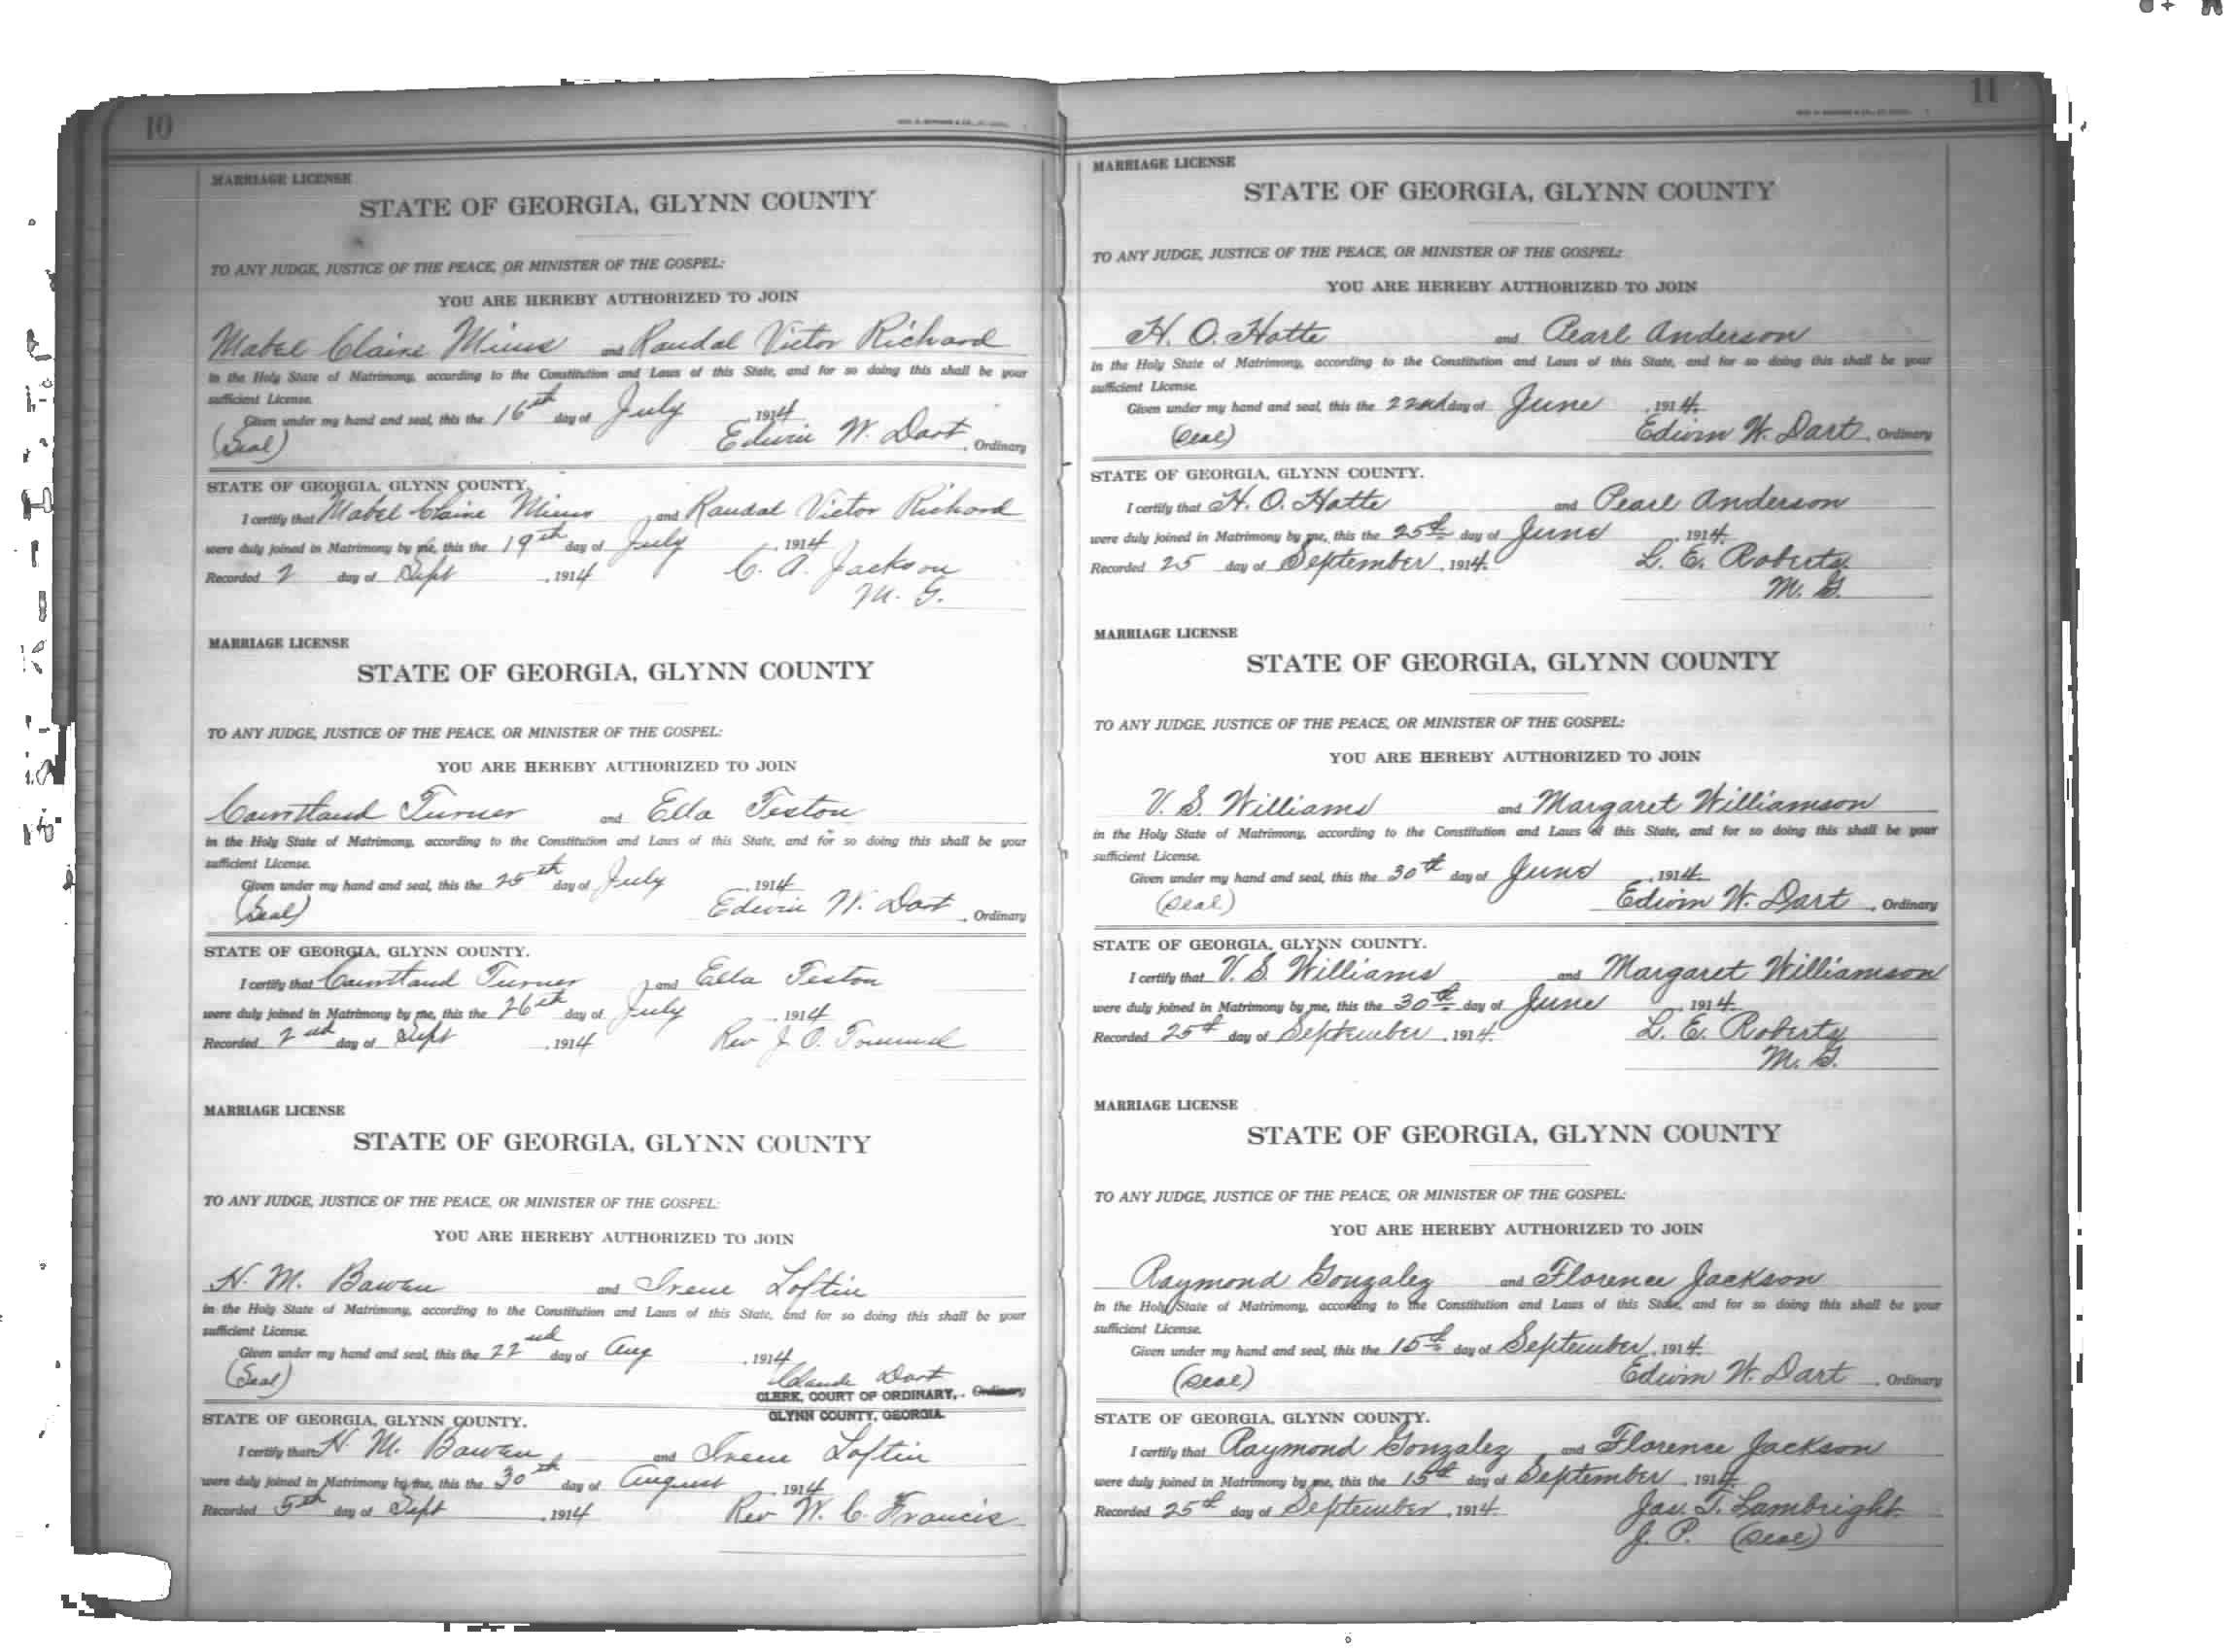 10
MARRIAGE LICENSE
STATE OF GEORGIA, GLYNN COUNTY
TO ANY JUDGE, JUSTICE OF THE PEACE, OR MINISTER OF THE GOSPEL:
YOU ARE HEREBY AUTHORIZED TO JOIN
Mabel Claire Mims and Randal Victor Richard
in the Holy State of Matrimony, according to the Constitution and Laws of this State, and for so doing this shall be your
sufficient License.
Given under my hand and seal, this the 16th day of July, 1914
(Seal) Edwin W. Dart, Ordinary
STATE OF GEORGIA, GLYNN COUNTY.
I certify that Mabel Claire Mims and Randal Victor Richard
were duly joined in Matrimony by me, this the 19th day of July, 1914
Recorded 2 day of Sept, 1914 C. A. Jackson
M. G.
MARRIAGE LICENSE
STATE OF GEORGIA, GLYNN COUNTY
TO ANY JUDGE, JUSTICE OF THE PEACE, OR MINISTER OF THE GOSPEL:
YOU ARE HEREBY AUTHORIZED TO JOIN
Courtland Turner and Ella Teston
in the Holy State of Matrimony, according to the Constitution and Laws of this State, and for so doing this shall be your
sufficient License.
Given under my hand and seal, this the 25th day of July, 1914
(Seal) Edwin W. Dart, Ordinary
STATE OF GEORGIA, GLYNN COUNTY.
I certify that Courtland Turner and Ella Teston
were duly joined in Matrimony by me, this the 26th day of July, 1914
Recorded 2nd day of Sept, 1914 Rev J. O.
MARRIAGE LICENSE
STATE OF GEORGIA, GLYNN COUNTY
TO ANY JUDGE, JUSTICE OF THE PEACE, OR MINISTER OF THE GOSPEL:
YOU ARE HEREBY AUTHORIZED TO JOIN
H. M. Bawen and Irene Loftin
in the Holy State of Matrimony, according to the Constitution and Laws of this State, and for so doing this shall be your
sufficient License.
Given under my hand and seal, this the 22nd day of Aug, 1914
(Seal) Claude Dart
CLERK, COURT OF ORDINARY, Ordinary
GLYNN COUNTY, GEORGIA.
STATE OF GEORGIA, GLYNN COUNTY.
I certify that H. M. Bawen and Irene Loftin
were duly joined in Matrimony by me, this the 30th day of August, 1914
Recorded 5th day of Sept, 1914 Rev W. C. Francis
11
MARRIAGE LICENSE
STATE OF GEORGIA, GLYNN COUNTY
TO ANY JUDGE, JUSTICE OF THE PEACE, OR MINISTER OF THE GOSPEL:
YOU ARE HEREBY AUTHORIZED TO JOIN
H. O. Hatte and Pearl Anderson
in the Holy State of Matrimony, according to the Constitution and Laws of this State, and for so doing this shall be your
sufficient License.
Given under my hand and seal, this the 22nd day of June, 1914.
(Seal) Edwin W. Dart, Ordinary
STATE OF GEORGIA, GLYNN COUNTY.
I certify that H. O. Hatte and Pearl Anderson
were duly joined in Matrimony by me, this the 25th day of June, 1914.
Recorded 25 day of September, 1914. L. E. Roberts,
M. G.
MARRIAGE LICENSE
STATE OF GEORGIA, GLYNN COUNTY
TO ANY JUDGE, JUSTICE OF THE PEACE, OR MINISTER OF THE GOSPEL:
YOU ARE HEREBY AUTHORIZED TO JOIN
V. S. Williams and Margaret Williamson
in the Holy State of Matrimony, according to the Constitution and Laws of this State, and for so doing this shall be your
sufficient License.
Given under my hand and seal, this the 30th day of June, 1914.
(Seal) Edwin W. Dart, Ordinary
STATE OF GEORGIA, GLYNN COUNTY.
I certify that V. S. Williams and Margaret Williamson
were duly joined in Matrimony by me, this the 30th day of June, 1914.
Recorded 25th day of September, 1914. L. E. Roberts,
M. G.
MARRIAGE LICENSE
STATE OF GEORGIA, GLYNN COUNTY
TO ANY JUDGE, JUSTICE OF THE PEACE, OR MINISTER OF THE GOSPEL:
YOU ARE HEREBY AUTHORIZED TO JOIN
Raymond Gonzalez and Florence Jackson
in the Holy State of Matrimony, according to the Constitution and Laws of this State, and for so doing this shall be your
sufficient License.
Given under my hand and seal, this the 15th day of September, 1914.
(Seal) Edwin W. Dart, Ordinary
STATE OF GEORGIA, GLYNN COUNTY.
I certify that Raymond Gonzalez and Florence Jackson
were duly joined in Matrimony by me, this the 15th day of September, 1914.
Recorded 25th day of September, 1914. Jas. T. Lambright.
J. P. (Seal)